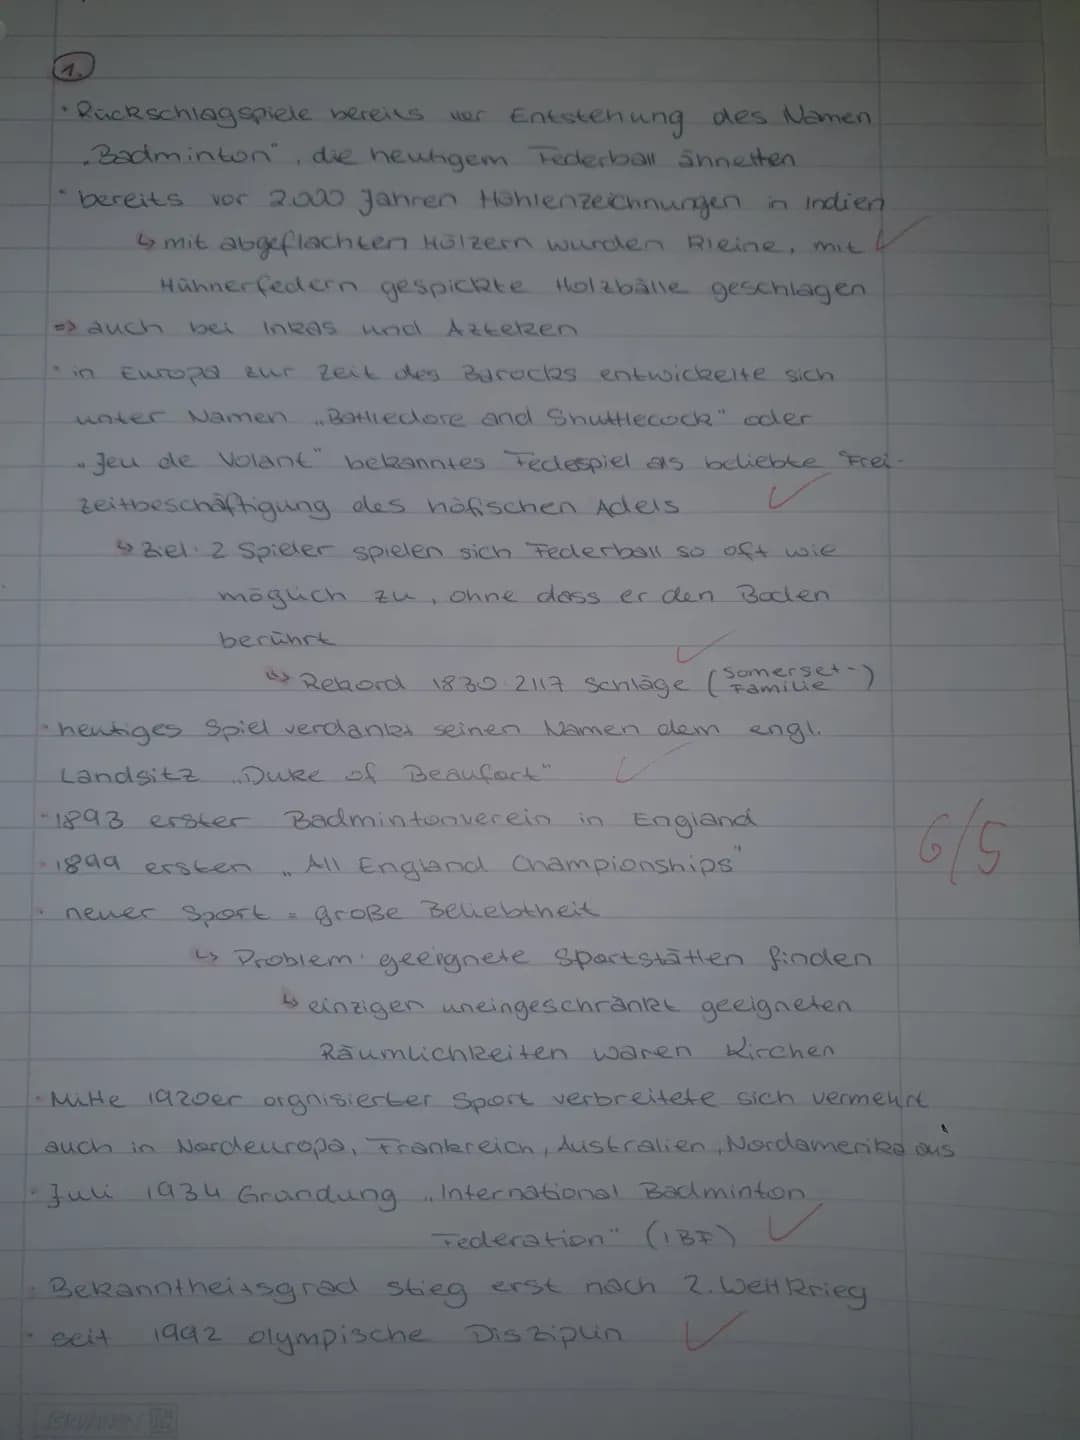 1.
• Rückschlagspiele bereits vor Entstehung des Namen
„Badminton", die heutigem Federball ähnelten
• bereits vor 2000 Jahren Höhlenzeichnungen in Indien
↳ mit abgeflachten Hölzern wurden kleine, mit
Hühnerfedern gespickte Holzbälle geschlagen
=> auch bei Inkas und Azteken
• in Europa zur Zeit des Barocks entwickelte sich
unter Namen „Battledore and Shuttlecock" oder
„Jeu de Volant" bekanntes Fedespiel als beliebte Frei-
zeitbeschäftigung des höfischen Adels
↳ Ziel: 2 Spieler spielen sich Federball so oft wie
möglich zu, ohne dass er den Boden
berührt
↳ Rekord 1830: 2117 Schläge (Somerset-
Familie)
• heutiges Spiel verdankt seinen Namen dem engl.
Landsitz „Duke of Beaufort"
• 1893 erster Badmintonverein in England
6/5
• 1899 ersten „All England Championships"
• neuer Sport = große Beliebtheit
↳ Problem: geeignete Sportstätten finden
↳ einzigen uneingeschränkt geeigneten
Räumlichkeiten waren Kirchen
• Mitte 1920er orgnisierter Sport verbreitete sich vermehrt
auch in Nordeuropa, Frankreich, Australien, Nordamerika aus
• Juli 1934 Gründung „International Badminton
Federation" (IBF)
• Bekanntheitsgrad stieg erst nach 2. Weltkrieg
• seit 1992 olympische Disziplin